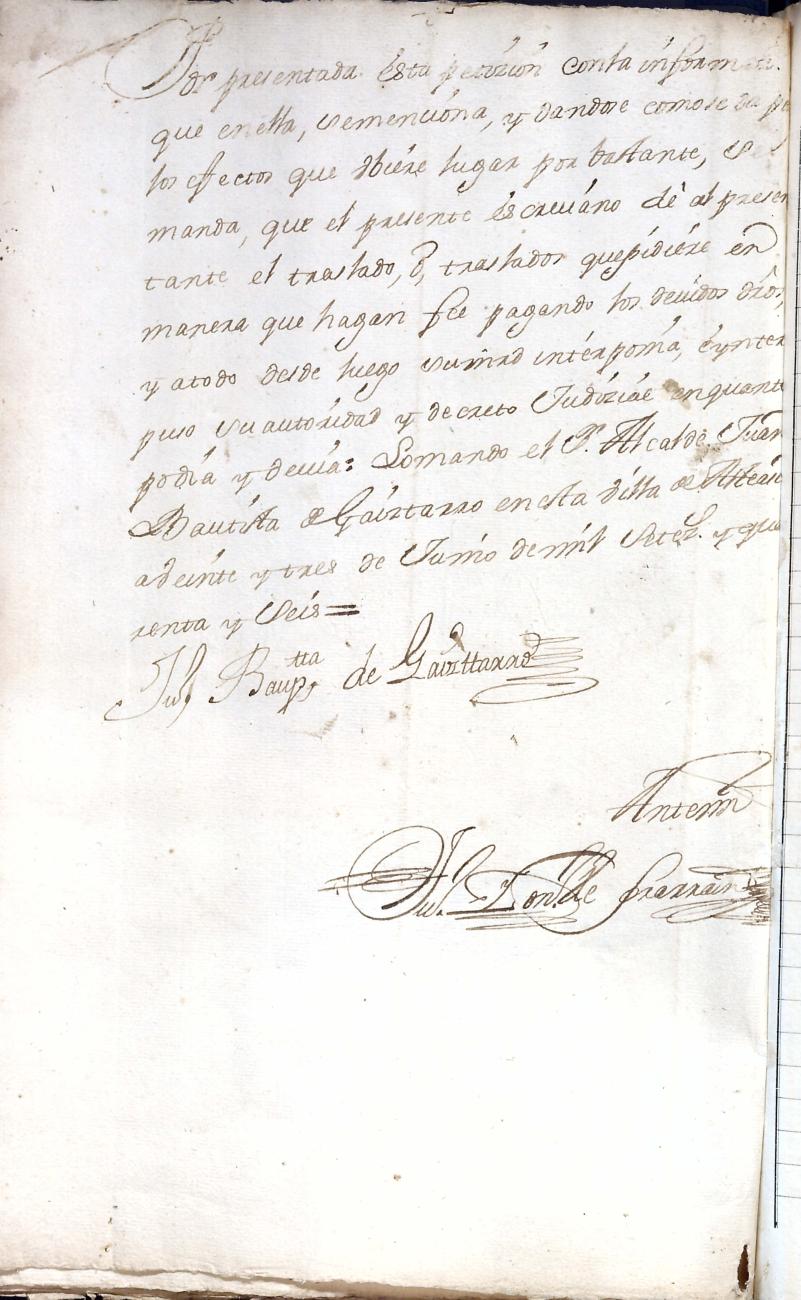 Por presentada esta petizión con la informa
que en ella, se menciona, y dandose como se da p
los efectos que ubiere lugar por bastante, se
manda, que el presente Escrivano dè al presen
tante el traslado, ó, traslados que pidiere en
manera que hagan fee pagando los devidos dros,
y atodo desde luego su mrd interponia, é ynter
puso su autoridad y decreto Judizial en quant
podia y devia: Lo mando el Sr. Alcalde Juan
Bautista de Gaiztarro en esta Villa de
a veinte y tres de Junio de mil Setez.s y qua
renta y Seis=
Ju.n Baup.tta de Gaizttarro
Antemi
Ju.n de Larrain